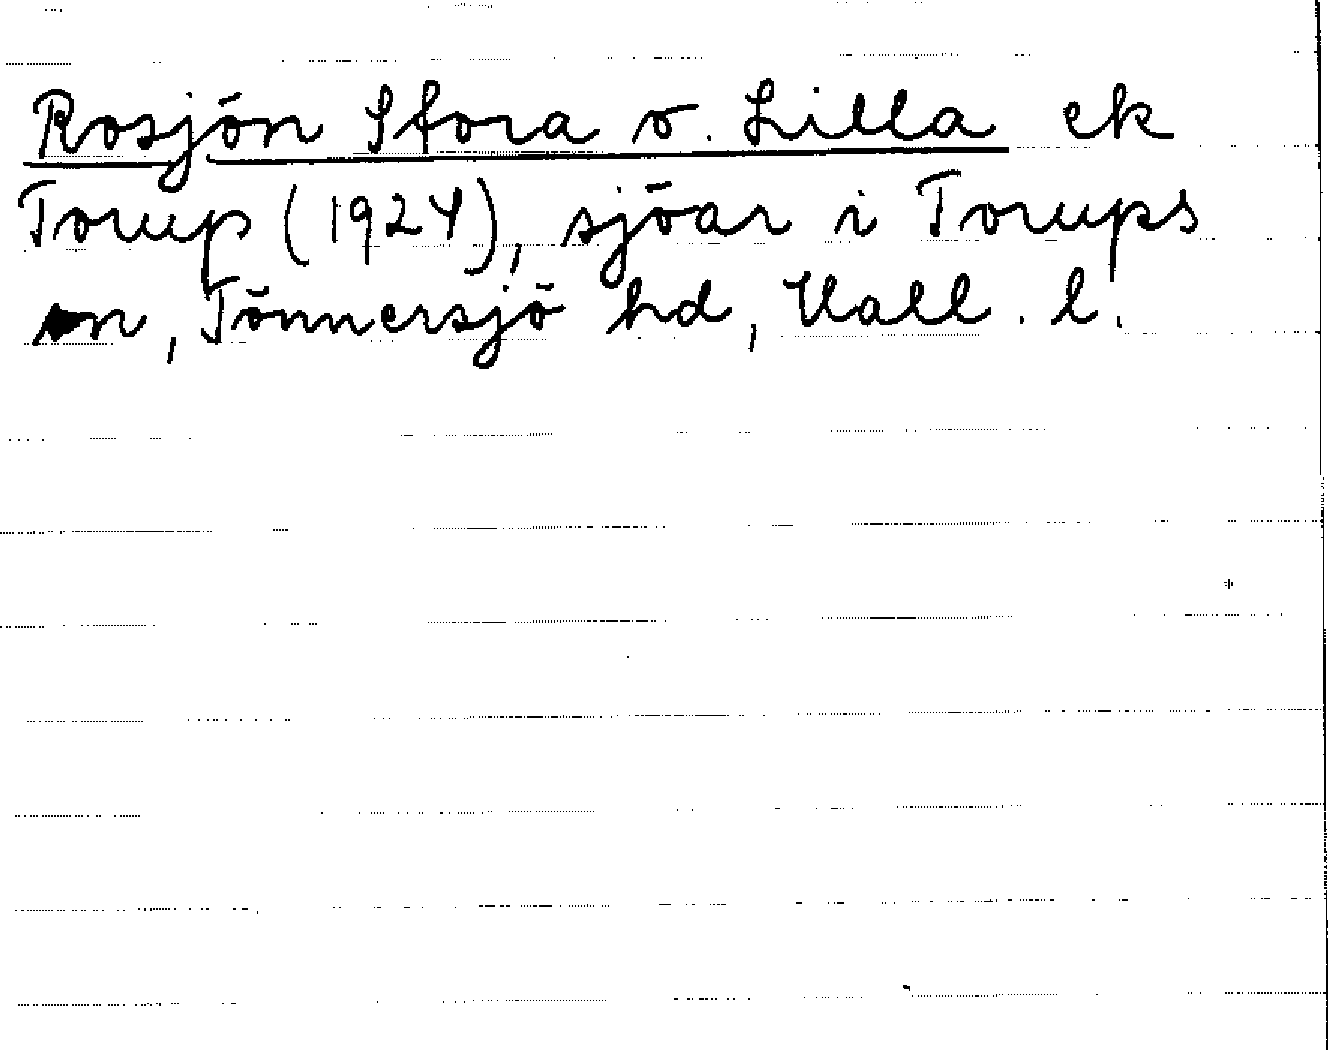 Rosjön Stora o. Lilla ek
Torup (1924), sjöar i Torups
sn, Tönnersjö hd, Hall. l.